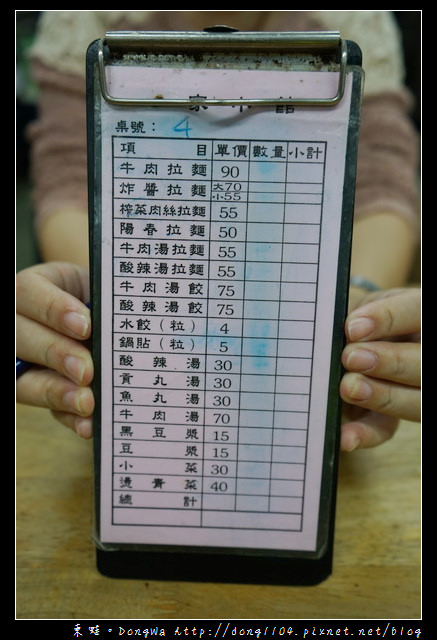 桌號：4
項目 單價 數量 小計
牛肉拉麵 90
炸醬拉麵 大70 小55
榨菜肉絲拉麵 55
陽春拉麵 50
牛肉湯拉麵 55
酸辣湯拉麵 55
牛肉湯餃 75
酸辣湯餃 75
水餃（粒） 4
鍋貼（粒） 5
酸辣湯 30
貢丸湯 30
魚丸湯 30
牛肉湯 70
黑豆漿 15
豆漿 15
小菜 30
燙青菜 40
總計
東蛙。DongWa http://dong1104.pixnet.net/blog